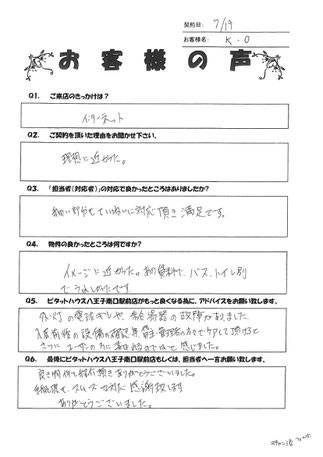 契約日: 7/19
お客様名: K.O
お客様の声
Q1. ご来店のきっかけは?
インターネット
Q2. ご契約を頂いた理由をお聞かせ下さい。
理想に近かった。
Q3. 「担当者(対応者)」の対応で良かったところはありましたか?
細い部分もていねいに対応頂き満足です。
Q4. 物件の良かったところは何ですか?
イメージに近かった。初費料で、バス、トイレ別
でうれしかったです。
Q5. ピタットハウス八王子南口駅前店がもっと良くなる為に、アドバイスをお願い致します。
外灯の電球ギレや、給湯器の故障がありました。
入居前に設備の確認を、管理の方でやって頂けると
さらにユーザーの方に喜ばれるのではと感じました。
Q6. 最後にピタットハウス八王子南口駅前店もしくは、担当者へ一言お願い致します。
良き物件を紹介頂きありがとうございました。
手続様も、スムーズな対応感謝致します
ありがとうございました。